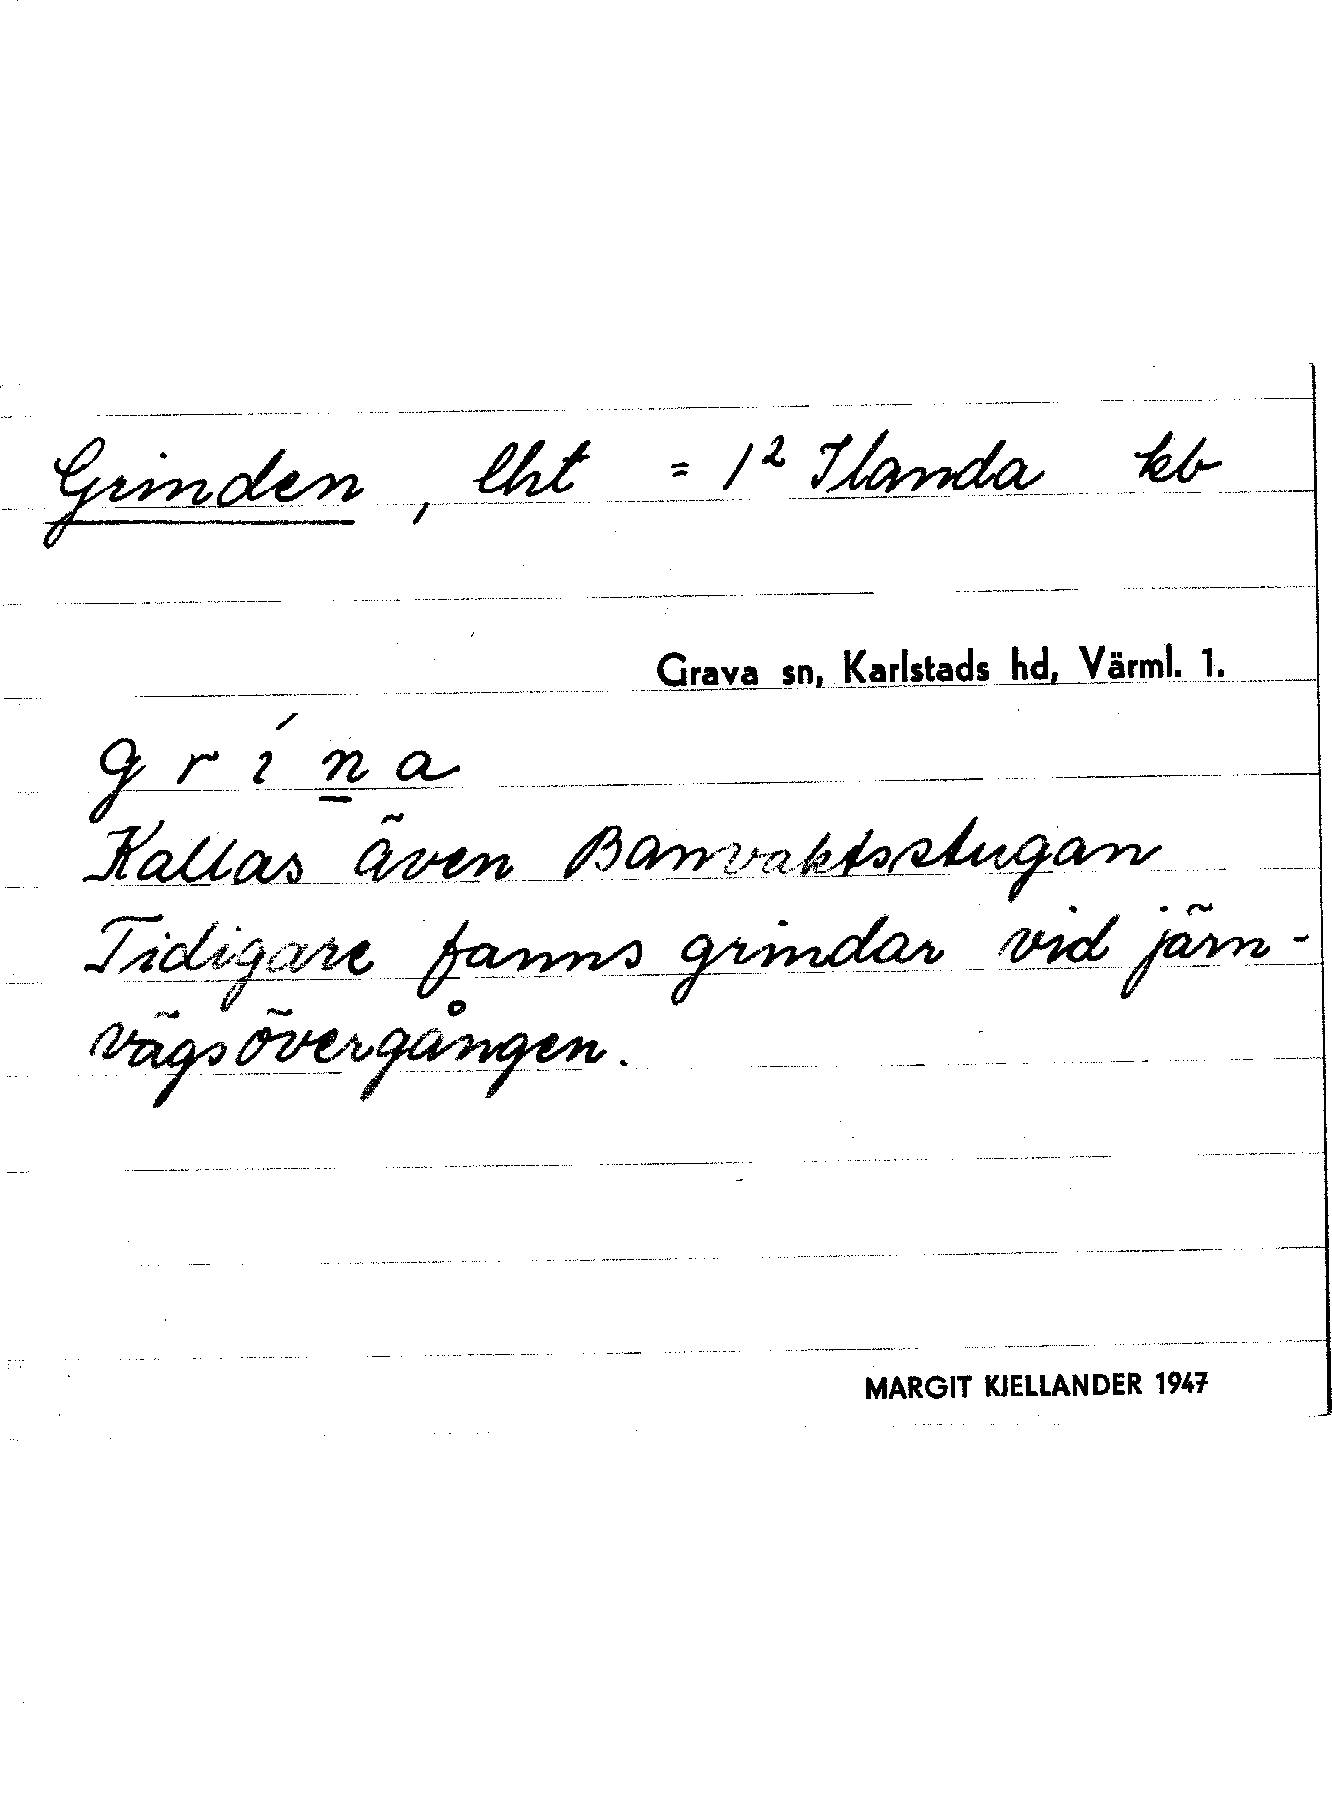 Grinden, lht = 1² Ilanda kb
Grava sn, Karlstads hd, Värml. 1.
g r í n a
Kallas även Banvaktsstugan
Tidigare fanns grindar vid järn-
vägsövergången.
MARGIT KJELLANDER 1947